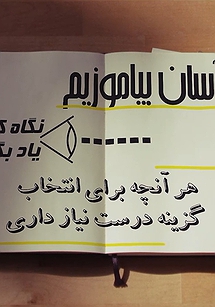 آسان بیاموزیم
نگاه
یاد
هر آنچه برای انتخاب
گزینه درست نیاز داری